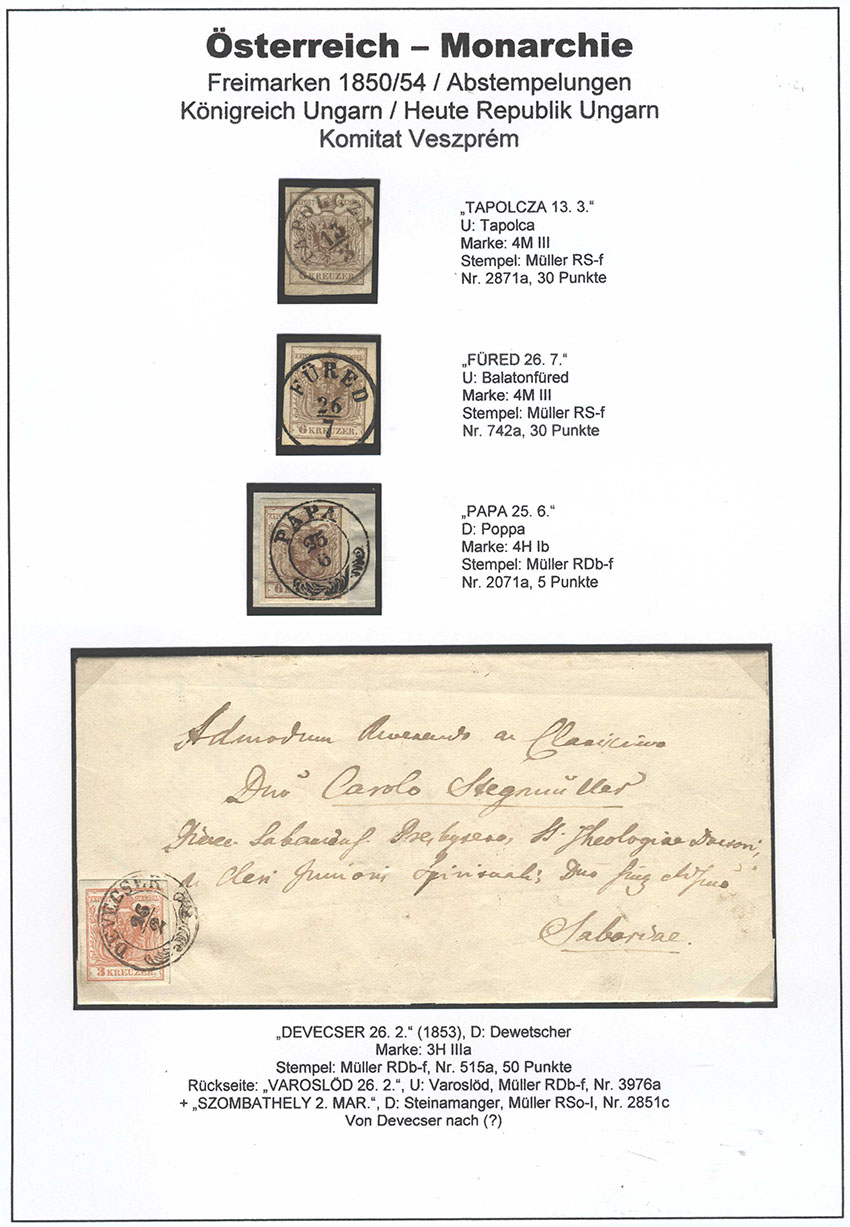 Österreich – Monarchie
Freimarken 1850/54 / Abstempelungen
Königreich Ungarn / Heute Republik Ungarn
Komitat Veszprém
TAPOLCZA
13/3
6 KREUZER
„TAPOLCZA 13. 3.“
U: Tapolca
Marke: 4M III
Stempel: Müller RS-f
Nr. 2871a, 30 Punkte
FÜRED
26/7
6 KREUZER.
„FÜRED 26. 7.“
U: Balatonfüred
Marke: 4M III
Stempel: Müller RS-f
Nr. 742a, 30 Punkte
PÁPA
25/6
„PAPA 25. 6.“
D: Poppa
Marke: 4H Ib
Stempel: Müller RDb-f
Nr. 2071a, 5 Punkte
Admodum Reverendo ac Clarissimo
Dno Carolo Stegmüller
Presbytero, St. Theologiae
Cleri Junioris Spirituali, Dno
Sabariae.
DEVECSER
3 KREUZER.
„DEVECSER 26. 2.“ (1853), D: Dewetscher
Marke: 3H IIIa
Stempel: Müller RDb-f, Nr. 515a, 50 Punkte
Rückseite: „VAROSLÖD 26. 2.“, U: Varoslöd, Müller RDb-f, Nr. 3976a
+ „SZOMBATHELY 2. MAR.“, D: Steinamanger, Müller RSo-I, Nr. 2851c
Von Devecser nach (?)